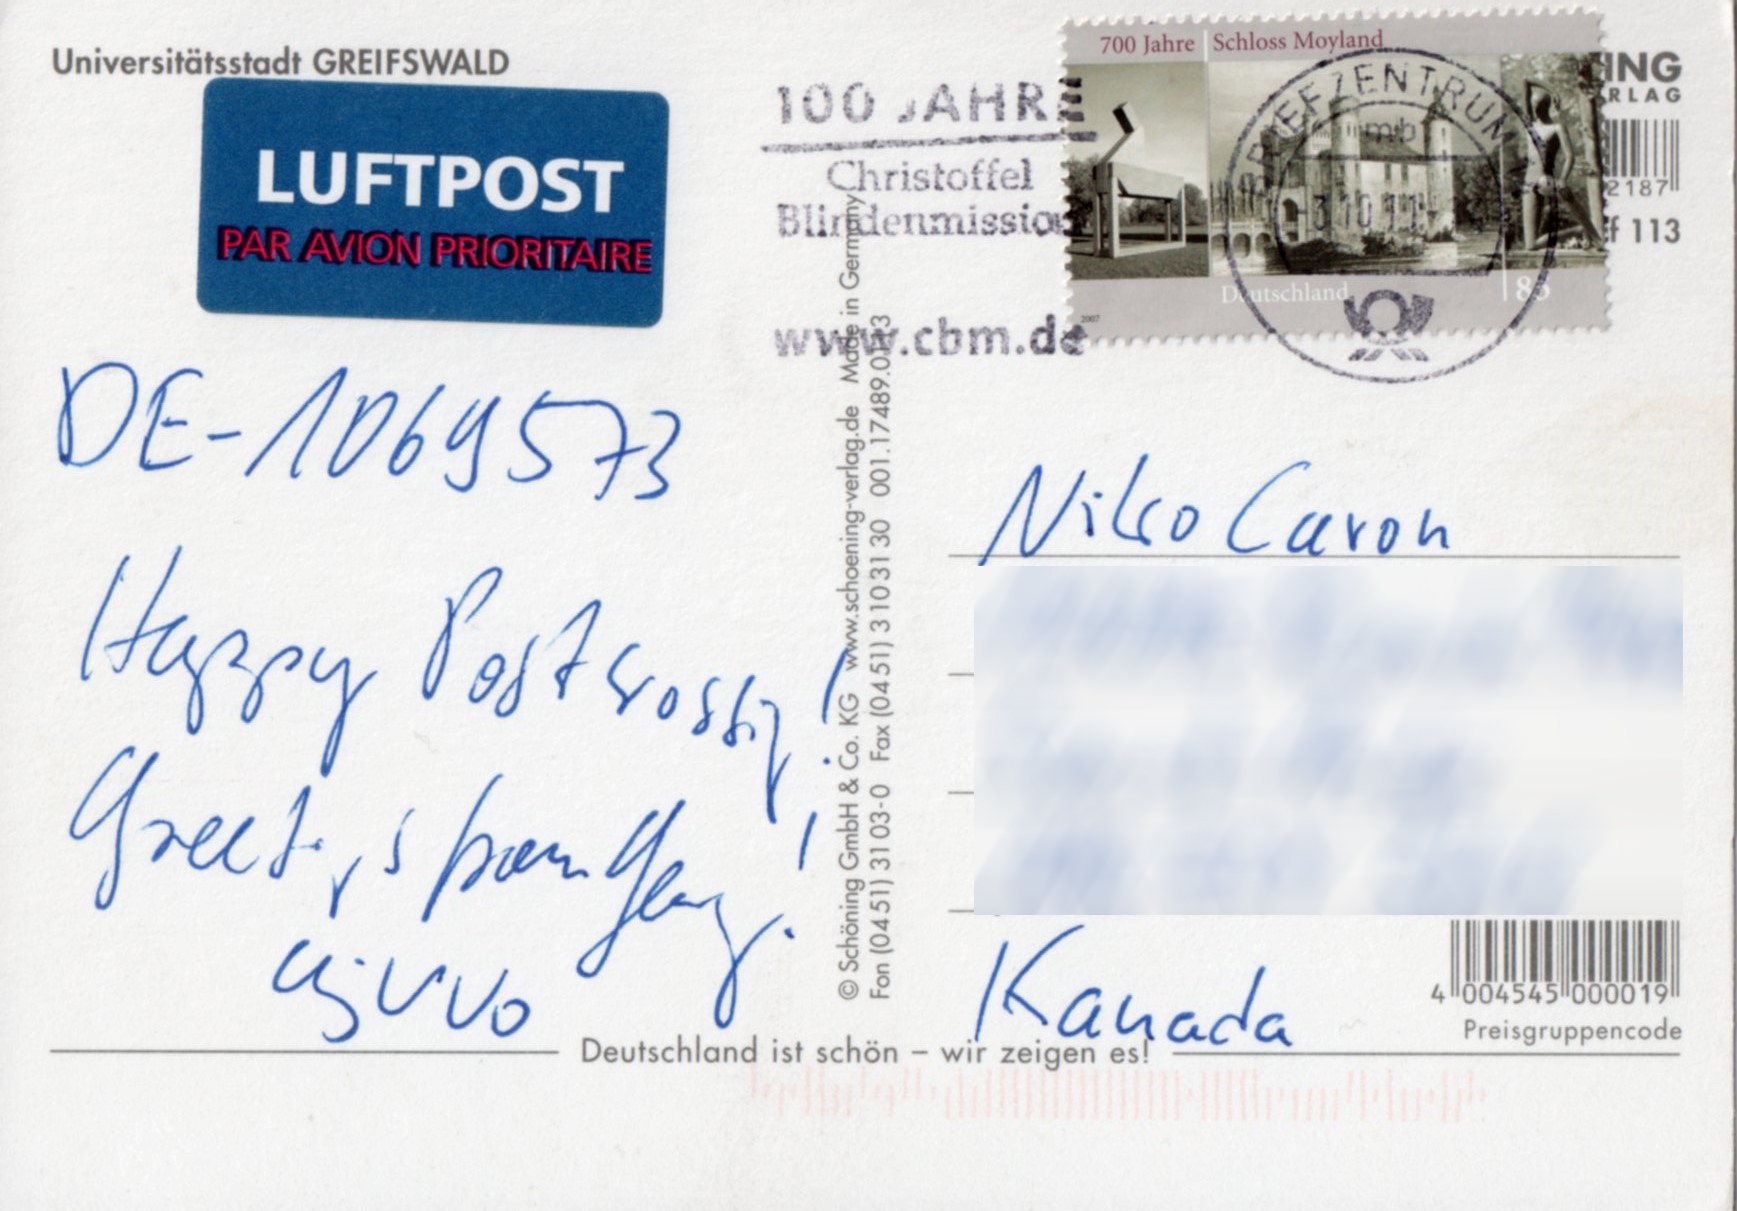 Universitätsstadt GREIFSWALD
LUFTPOST
PAR AVION PRIORITAIRE
100 JAHRE
Christoffel
Blindenmission
www.cbm.de
700 Jahre | Schloss Moyland
Deutschland
2007
BRIEFZENTRUM
mb
ING
RLAG
2187
f 113
DE-1069573
Happy Postcrossing!
Greetings from Germany!
© Schöning GmbH & Co. KG www.schoening-verlag.de Made in Germany
Fon (04 51) 31 03-0 Fax (04 51) 3 10 31 30 001.17489.01
Niko Caron
Kanada
4 004545 000019
Preisgruppencode
Deutschland ist schön – wir zeigen es!